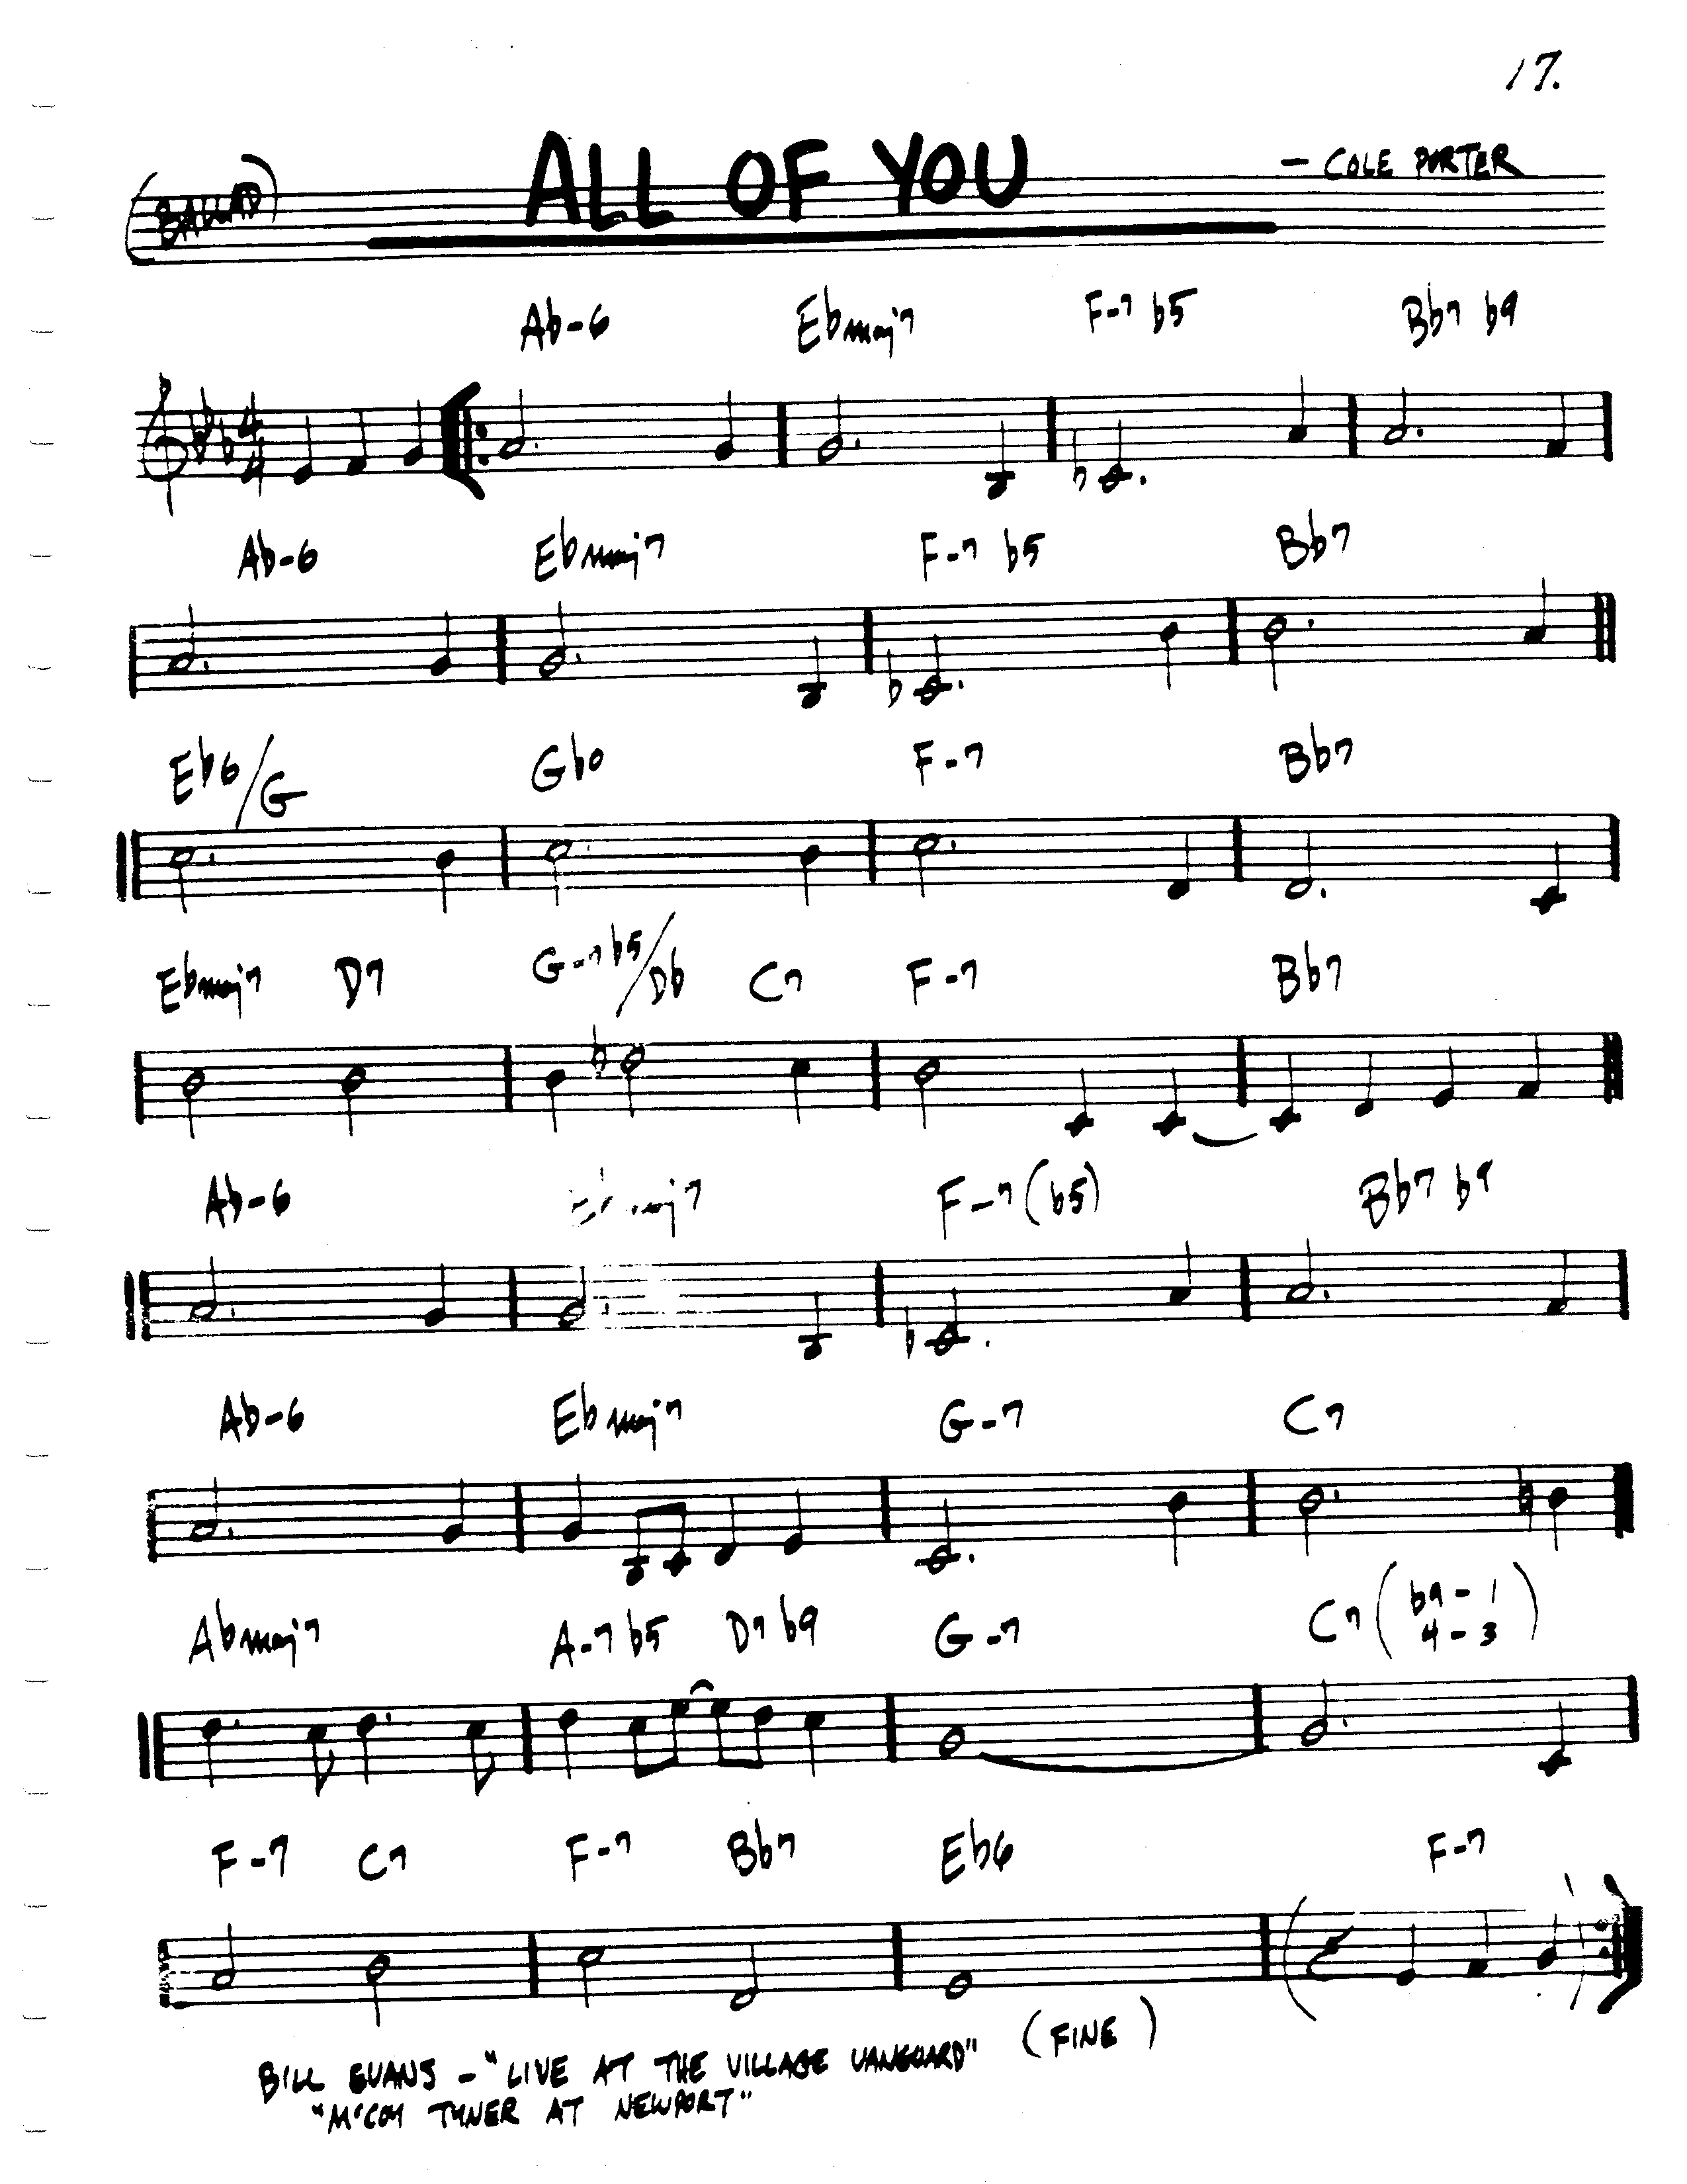 17.
ALL OF YOU
- COLE PORTER
(BALLAD)
Ab-6 Ebmaj7 F-7 b5 Bb7 b9
Ab-6 Ebmaj7 F-7 b5 Bb7
Eb6/G Gbo F-7 Bb7
Ebmaj7 D7 G-7b5/Db C7 F-7 Bb7
Ab-6 Ebmaj7 F-7(b5) Bb7 b9
Ab-6 Ebmaj7 G-7 C7
Abmaj7 A-7 b5 D7 b9 G-7 C7(b9-1 4-3)
F-7 C7 F-7 Bb7 Eb6 F-7
(FINE)
BILL EVANS - "LIVE AT THE VILLAGE VANGUARD"
"McCOY TYNER AT NEWPORT"